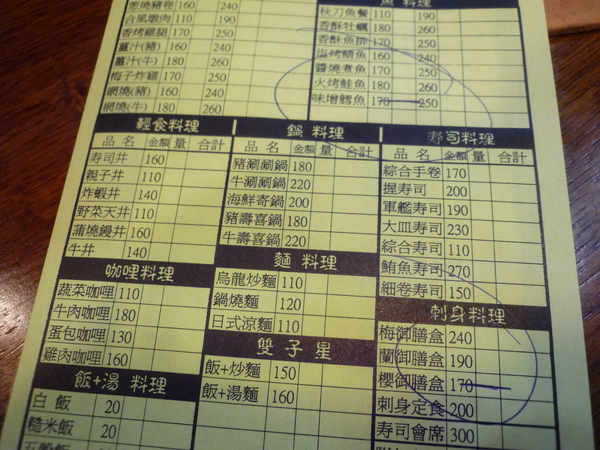 蔥燒豬卷 160 240
台風墩肉 110 190
香烤雞腿 170 250
薑汁(豬) 160 240
薑汁(牛) 180 260
梅子炸雞 170 250
網燒(豬) 160 240
網燒(牛) 180 260
魚 料理
秋刀魚餐 110 190
香酥牡蠣 180 260
香酥魚排 170 250
塩烤鯖魚 160 240
醬燒煮魚 170 250
火烤鮭魚 180 260
味增鱈魚 170 250
輕食料理
品名 金額 量 合計
壽司丼 160
親子丼 110
炸蝦丼 140
野菜天丼 110
蒲燒鰻丼 160
牛丼 140
咖哩料理
蔬菜咖哩 110
牛肉咖哩 180
蛋包咖哩 130
雞肉咖哩 160
飯+湯 料理
白飯 20
糙米飯 20
鍋 料理
品名 金額 量 合計
豬涮涮鍋 180
牛涮涮鍋 220
海鮮寄鍋 200
豬壽喜鍋 180
牛壽喜鍋 220
麵 料理
烏龍炒麵 110
鍋燒麵 120
日式涼麵 110
雙子星
飯+炒麵 150
飯+湯麵 160
寿司料理
品名 金額 量 合計
綜合手卷 170
握寿司 200
軍艦寿司 190
大皿寿司 230
綜合寿司 110
鮪魚寿司 270
細卷寿司 150
刺身料理
梅御膳盒 240
蘭御膳盒 190
櫻御膳盒 170
刺身定食 200
寿司會席 300